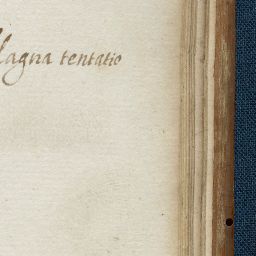 Magna tentatio